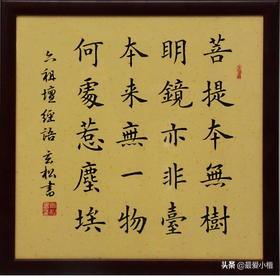 菩提本無樹
明鏡亦非臺
本来無一物
何處惹塵埃
六祖壇經語 玄松書
头条 @最爱小楷